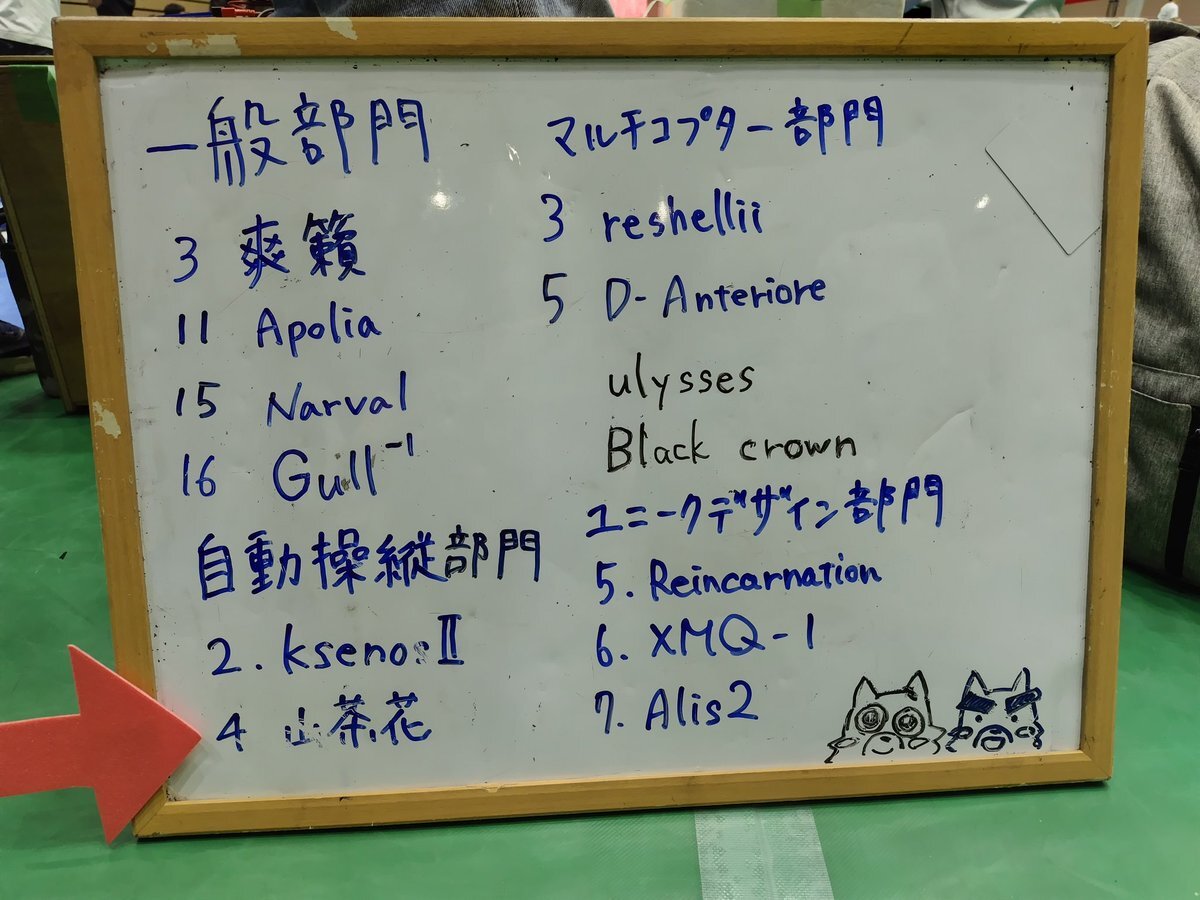 一般部門
3 爽籟
11 Apolia
15 Narval
16 Gull⁻¹
自動操縦部門
2. ksenosⅡ
4 山茶花
マルチコプター部門
3 reshellii
5 D-Anteriore
ulysses
Black crown
ユニークデザイン部門
5. Reincarnation
6. XMQ-1
7. Alis2